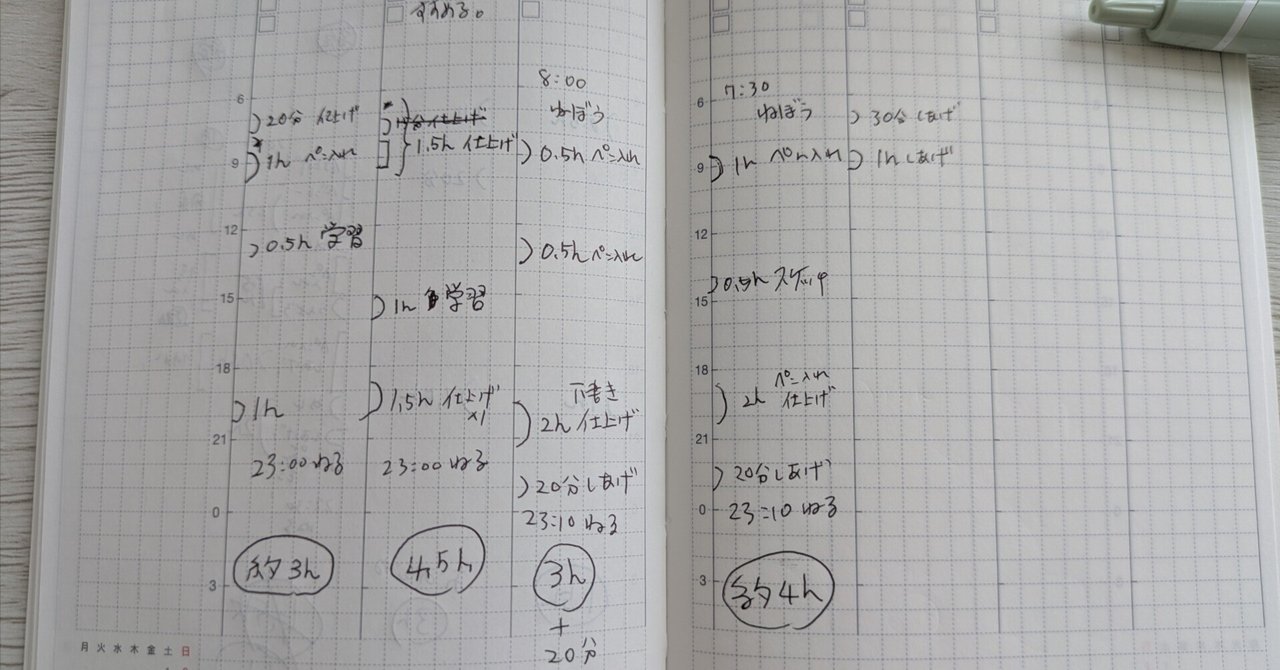 すすめる。
6
9
12
15
18
21
0
3
20分 仕上げ
1h ペン入れ
0.5h 学習
1h
23:00 ねる
約3h
1.5h 仕上げ
1h 学習
1.5h 仕上げ
×1
23:00 ねる
4.5h
8:00
ねぼう
0.5h ペン入れ
0.5h ペン入れ
下書き
2h 仕上げ
20分しあげ
23:10 ねる
3h
+
20分
月火水木金土日
6
9
12
15
18
21
0
3
7:30
ねぼう
1h ペン入れ
0.5h スケッチ
ペン入れ
2h 仕上げ
20分しあげ
23:10 ねる
約4h
30分 しあげ
1h しあげ